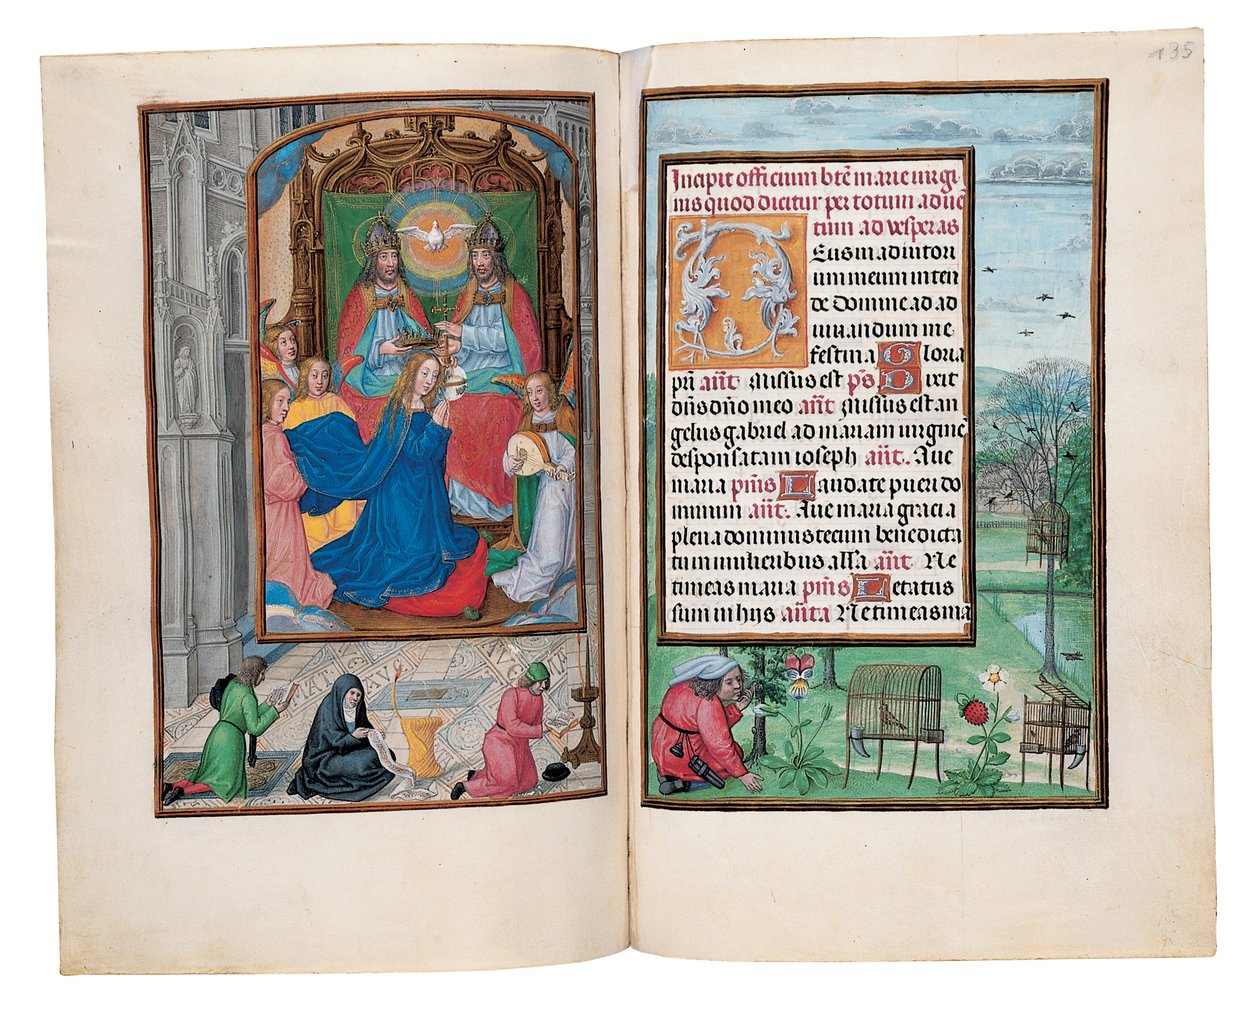 135
Incipit officium bt̄e marie uirgi
nis quod dicitur per totum aduē
tum ad vesperas
Deus in adiutori
um meum inten
de Domine ad ad
iuuandum me
festina Gloria
pr̄i an̄t Missus est ps̄ Dixit
dn̄s dn̄o meo an̄t Missus est an
gelus gabriel ad mariam uirginē
desponsatam ioseph an̄t. Aue
maria pm̄s Laudate pueri do
minum an̄t. Aue maria gracia
plena dominus tecum benedicta
tu in mulieribus alla an̄t Ne
timeas maria pm̄s Letatus
sum in hijs an̄ta Ne timeas ma